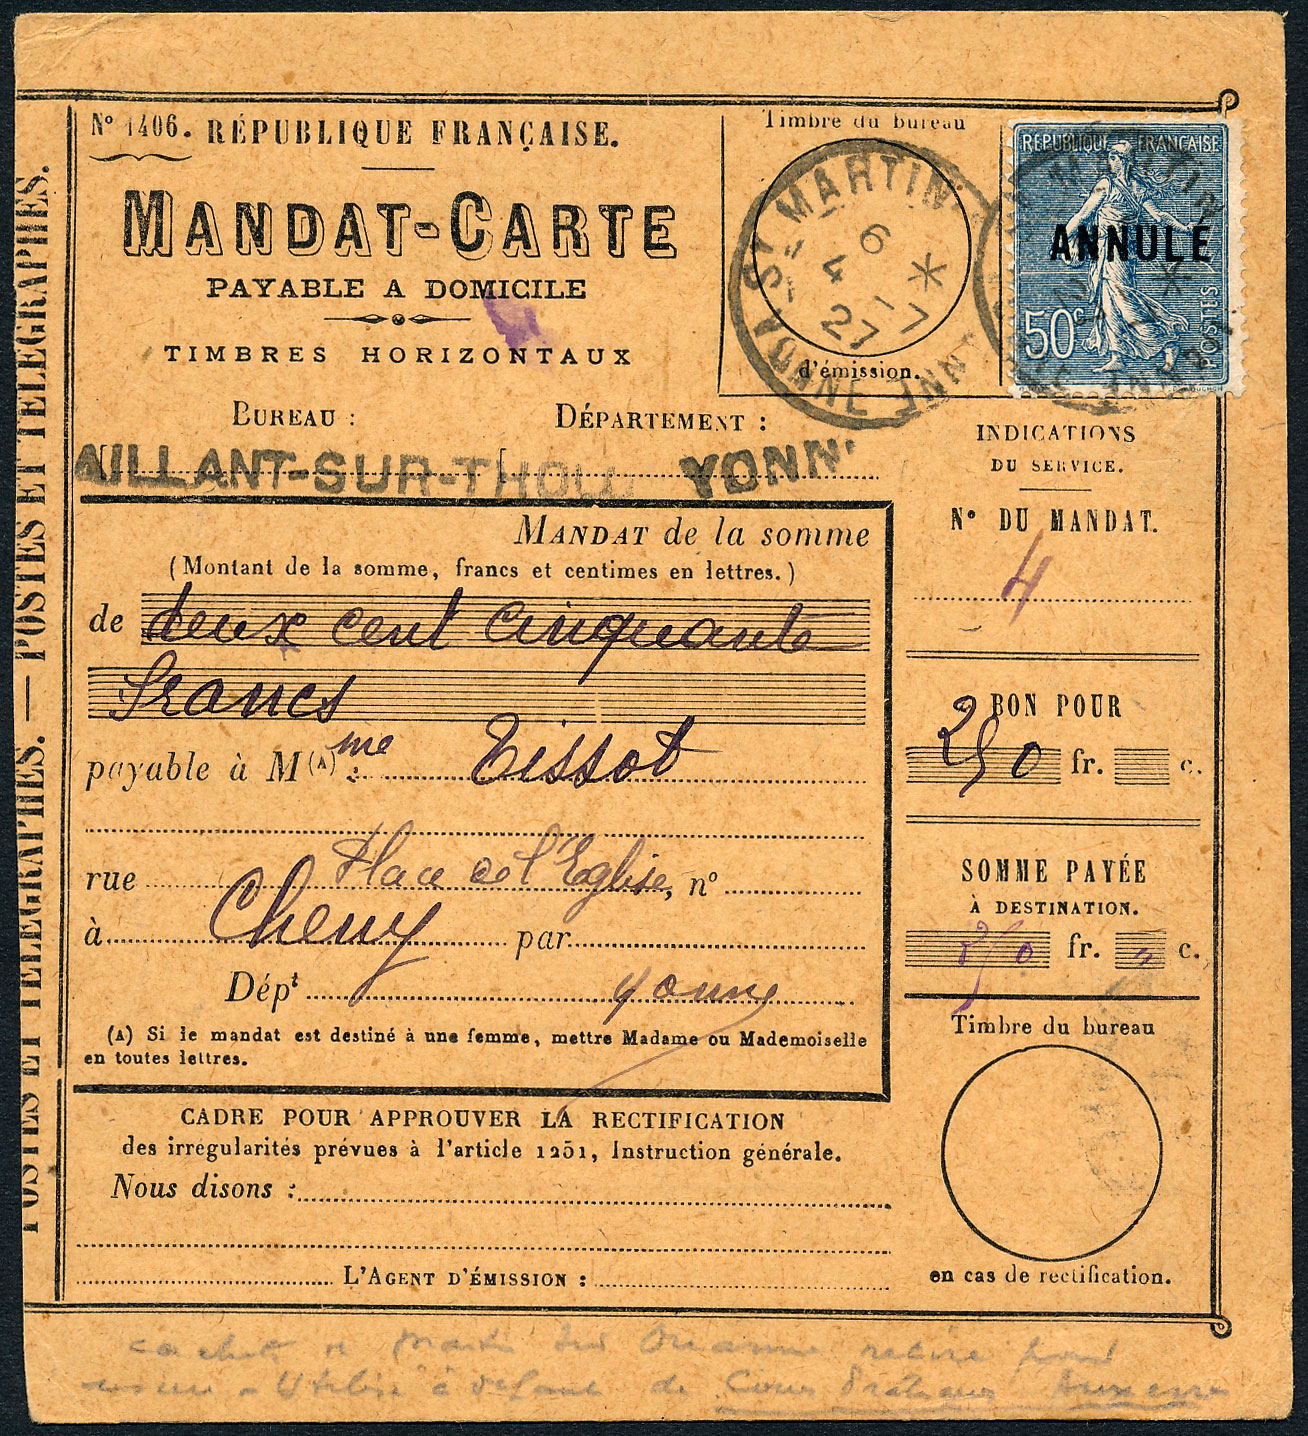 POSTES ET TELEGRAPHES. — POSTES ET TELEGRAPHES.
N° 1406. RÉPUBLIQUE FRANÇAISE.
MANDAT-CARTE
PAYABLE A DOMICILE
TIMBRES HORIZONTAUX
Timbre du bureau
d'émission.
ST MARTIN
6
4
27
YONNE
RÉPUBLIQUE FRANÇAISE
ANNULÉ
50c
POSTES
BUREAU : DÉPARTEMENT :
AILLANT-SUR-THOL YONN
MANDAT de la somme
(Montant de la somme, francs et centimes en lettres.)
de deux cent cinquante
francs
payable à M(A) me : Tissot
rue Place de l'Eglise, n°
à Cheny par
Dépt Yonne
(A) Si le mandat est destiné à une femme, mettre Madame ou Mademoiselle
en toutes lettres.
CADRE POUR APPROUVER LA RECTIFICATION
des irrégularités prévues à l'article 1251, Instruction générale.
Nous disons :
L'AGENT D'ÉMISSION :
INDICATIONS
DU SERVICE.
N° DU MANDAT.
4
BON POUR
250 fr. c.
SOMME PAYÉE
À DESTINATION.
250 fr. " c.
Timbre du bureau
en cas de rectification.
cachet St Martin sur Ouanne retiré pour
usure - Utilisé à défaut de Cours Pratiques Auxerre